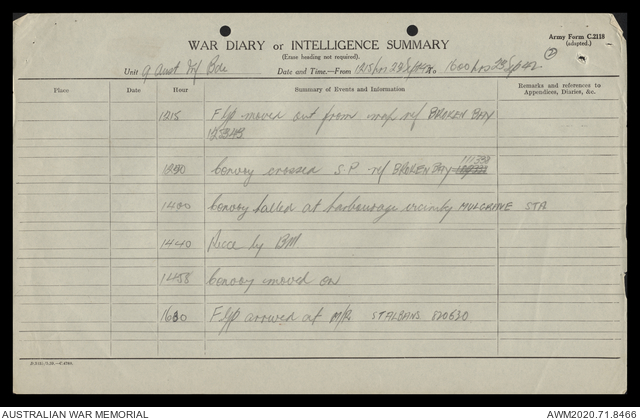 Army Form C.2118
(adapted.)
WAR DIARY or INTELLIGENCE SUMMARY
(Erase heading not required).
Unit 9 Aust Inf Bde Date and Time—From 1215 hrs 23 Sep 42 To 1600 hrs 23 Sep 42
Place Date Hour Summary of Events and Information Remarks and references to Appendices, Diaries, &c.
1215 F Gp moved out from map ref BROKEN BAY
Convoy crossed S.P ref BROKEN BAY 111338
1400 Convoy halted at harbourage vicinity MULGRAVE STA
1440 Recce by BM
1458 Convoy moved on
1600 F Gp arrived at M/R ST ALBANS 820630
AUSTRALIAN WAR MEMORIAL
AWM2020.71.8466